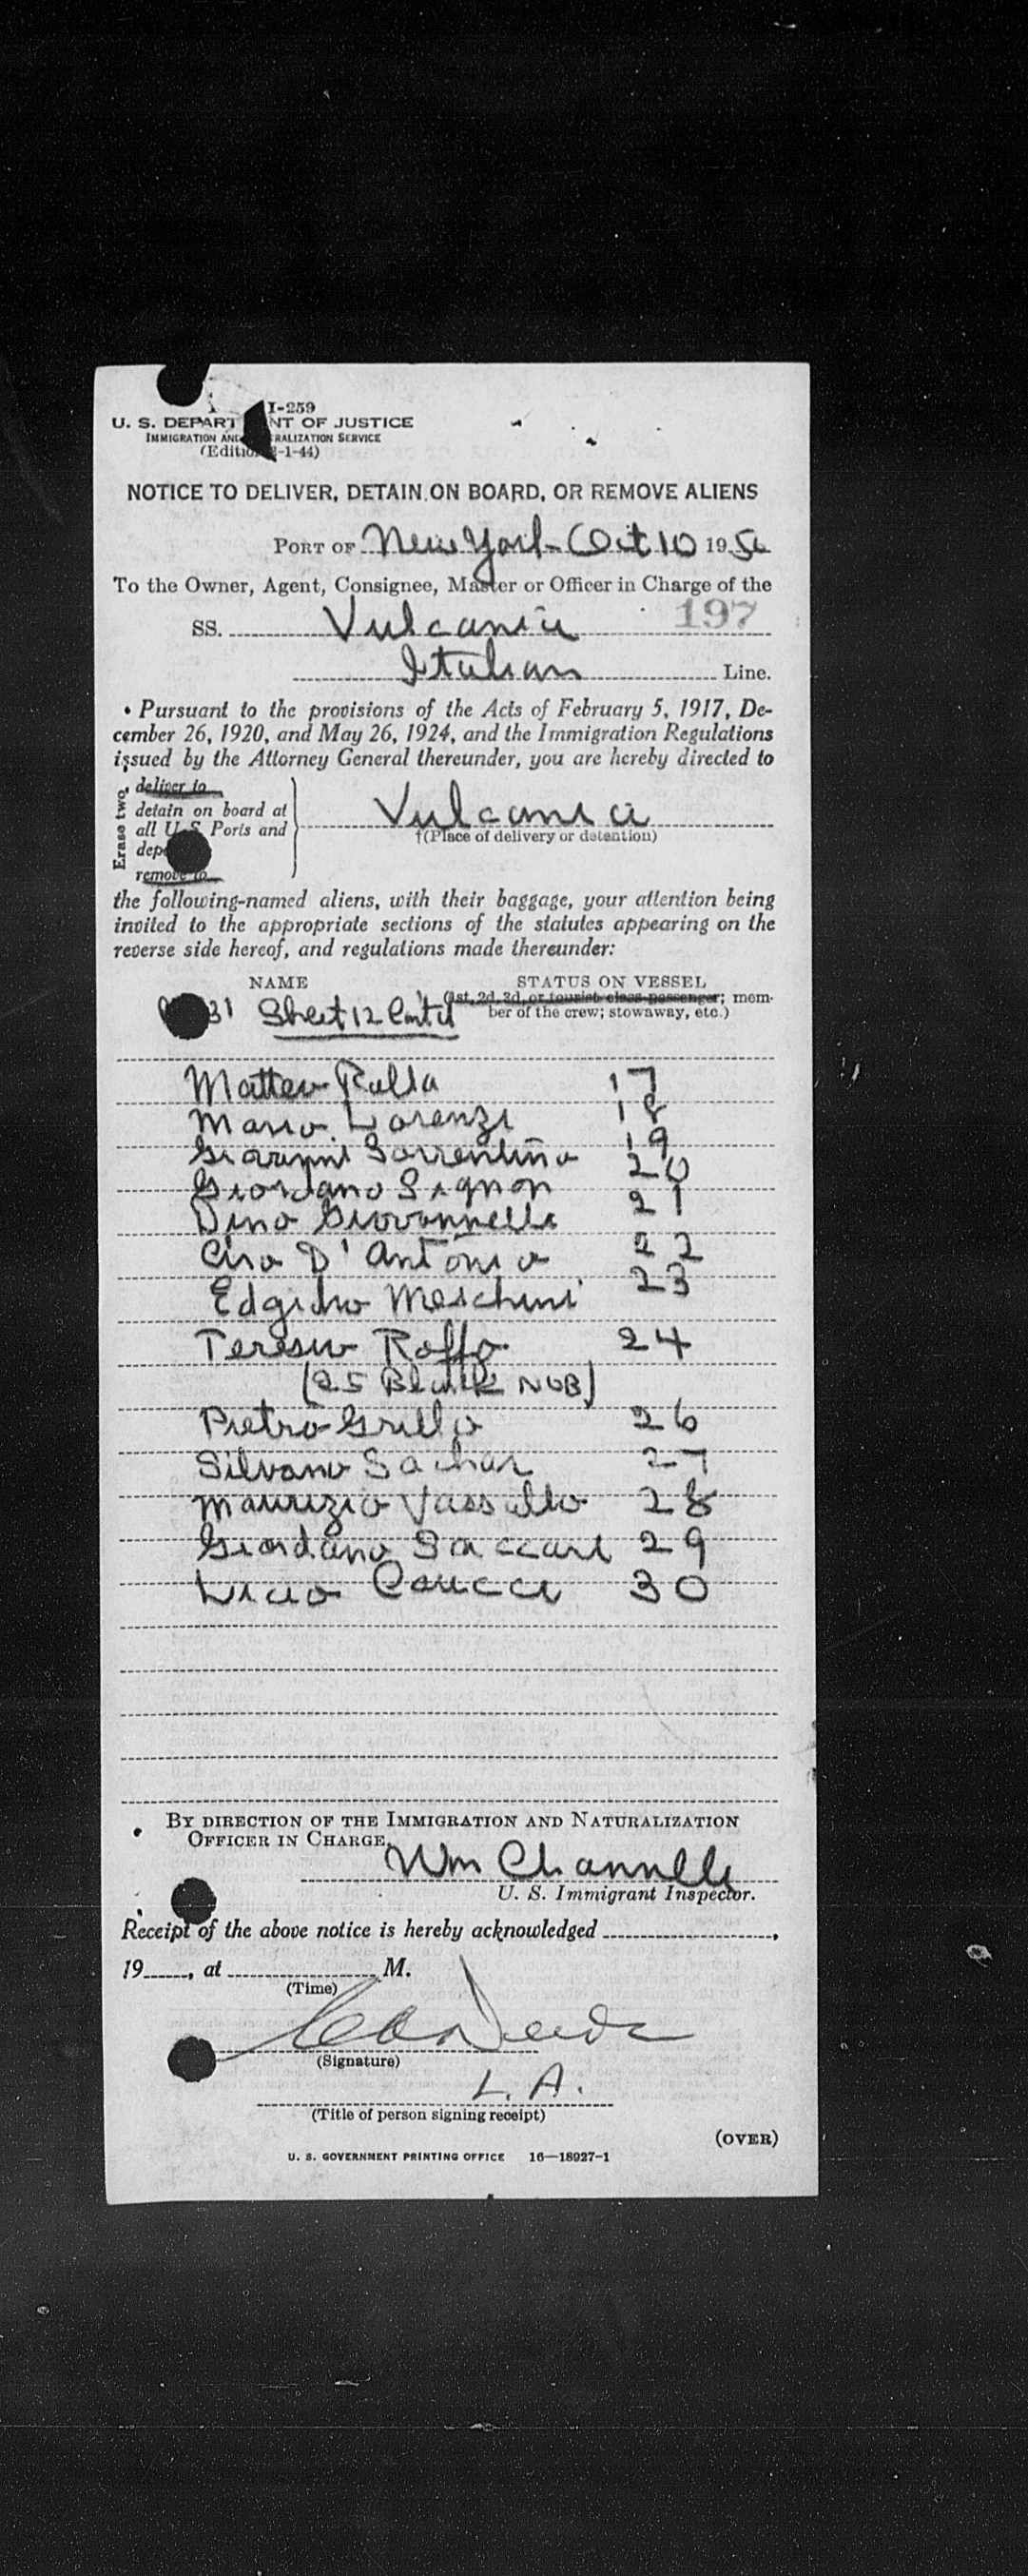 I-259
U. S. DEPART NT OF JUSTICE
IMMIGRATION AND RALIZATION SERVICE
(Edition -1-44)
NOTICE TO DELIVER, DETAIN ON BOARD, OR REMOVE ALIENS
PORT OF New York - Oct 10 1950
To the Owner, Agent, Consignee, Master or Officer in Charge of the
197
SS. Vulcania
Italian Line.
Pursuant to the provisions of the Acts of February 5, 1917, De-
cember 26, 1920, and May 26, 1924, and the Immigration Regulations
issued by the Attorney General thereunder, you are hereby directed to
Erase two.
deliver to
detain on board at
all U. S. Ports and
dep
remove to
Vulcania
†(Place of delivery or detention)
the following-named aliens, with their baggage, your attention being
invited to the appropriate sections of the statutes appearing on the
reverse side hereof, and regulations made thereunder:
NAME STATUS ON VESSEL
(1st, 2d, 3d, or tourist class passenger; mem-
ber of the crew; stowaway, etc.)
31 Sheet 12 Cont'd
Matteo 17
Mario Lorenzi 18
Giovanni Sorrentino 19
Giordano Signon 20
Dino Giovannelli 21
Ciro D'Antonio 22
Meschini 23
Roffo 24
(25 Blank NOB)
Pietro Grillo 26
Silvano Sachar 27
Maurizio Vassallo 28
Giordano Saccari 29
Licio 30
BY DIRECTION OF THE IMMIGRATION AND NATURALIZATION
OFFICER IN CHARGE.
Wm Channell
U. S. Immigrant Inspector.
Receipt of the above notice is hereby acknowledged ,
19 , at M.
(Time)
(Signature)
L. A.
(Title of person signing receipt)
(OVER)
U. S. GOVERNMENT PRINTING OFFICE 16—18927-1